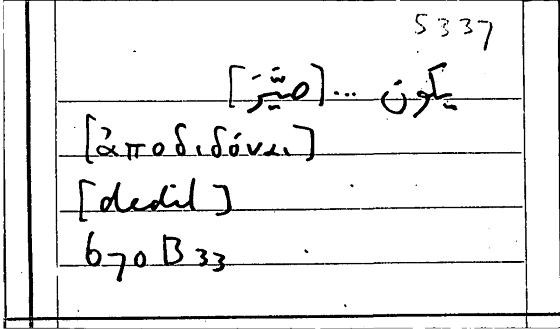 5337
يكون ... [صيّر]
[ἀποδιδόναι]
[dedit]
670 B 33